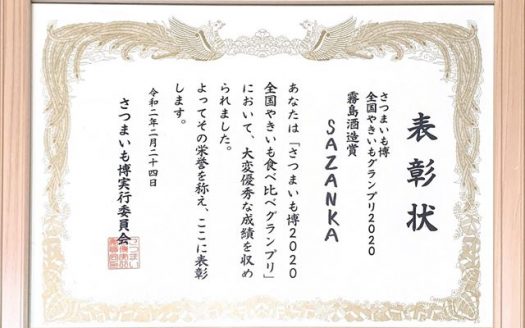 表彰状
さつまいも博
全国やきいもグランプリ2020
霧島酒造賞
SAZANKA
あなたは「さつまいも博2020
全国やきいも食べ比べグランプリ」
において、大変優秀な成績を収め
られました。
よってその栄誉を称え、ここに表彰
します。
令和二年二月二十四日
さつまいも博実行委員会